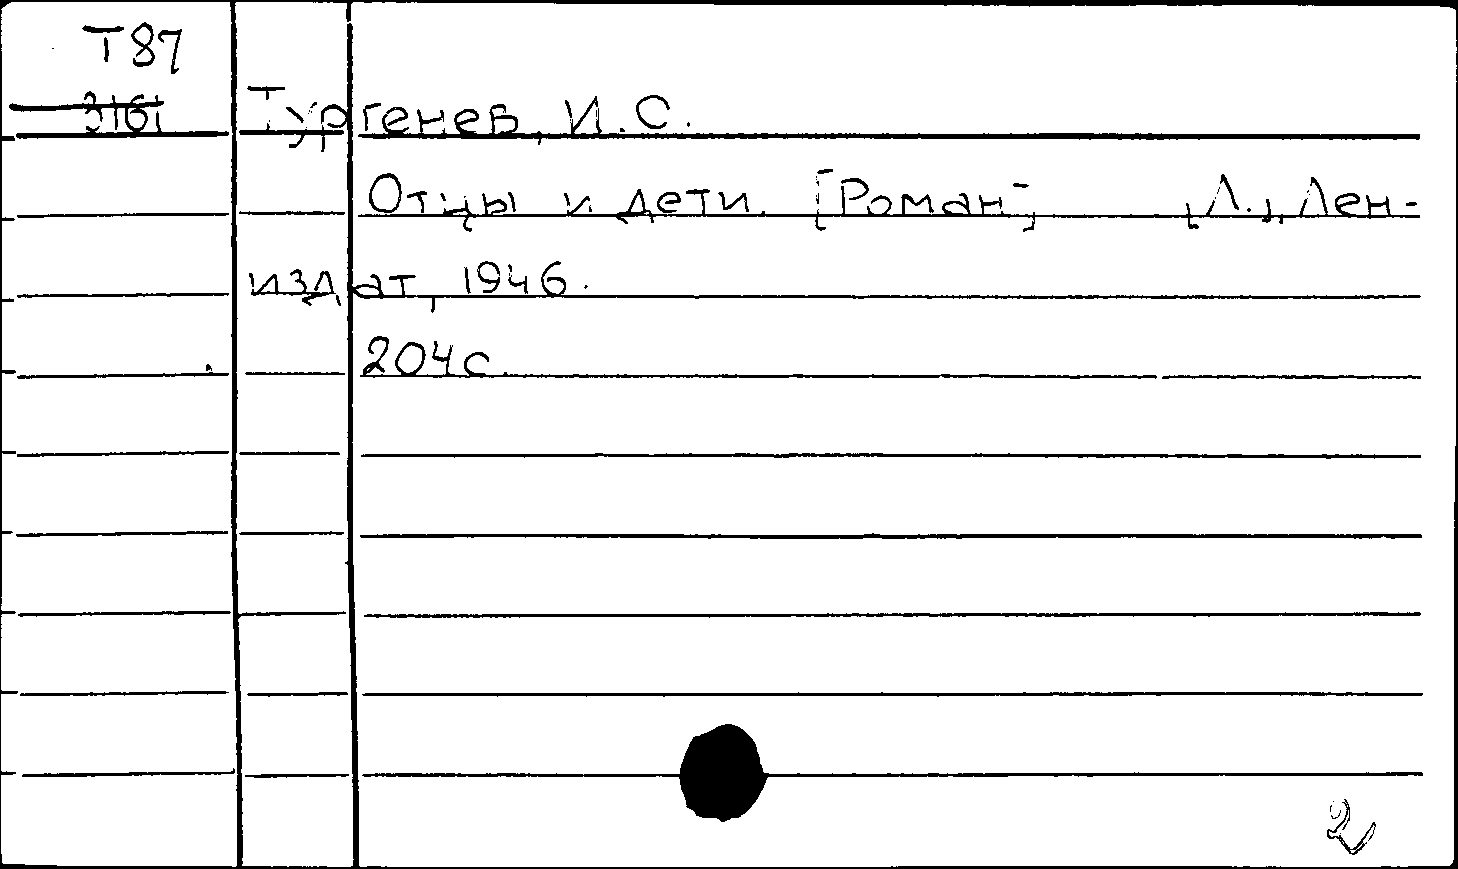 Т87
3161
Тургенев, И. С.
Отцы и дети. [Роман] [Л.], Лен-
издат, 1946.
204 с.
2